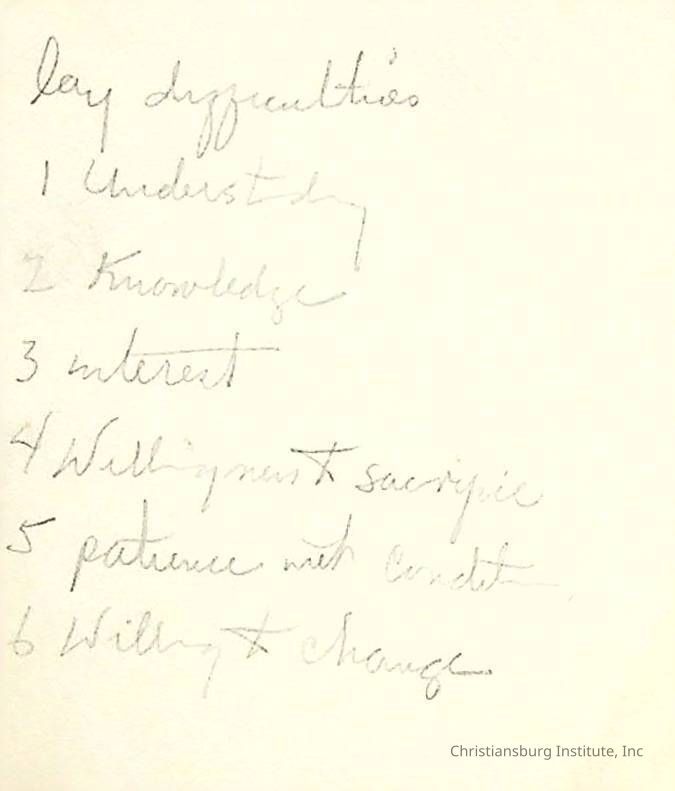 lay difficulties
1 Understdng
2 Knowledge
3 interest
4 Willingness to sacrifice
5 patience with condit
6 Willing to change
Christiansburg Institute, Inc